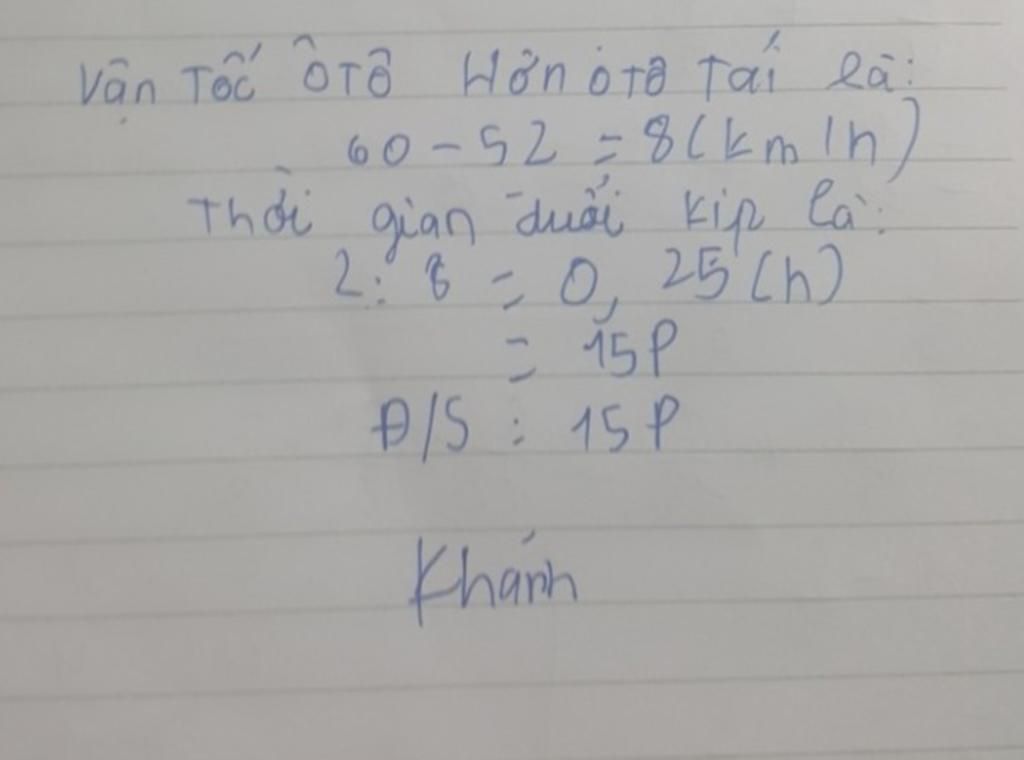 Vận Tốc Ôtô Hơn ôtô Tải là:
60 - 52 = 8 (km/h)
Thời gian đuổi kịp là:
2 : 8 = 0,25 (h)
= 15P
Đ/S : 15P
Khánh